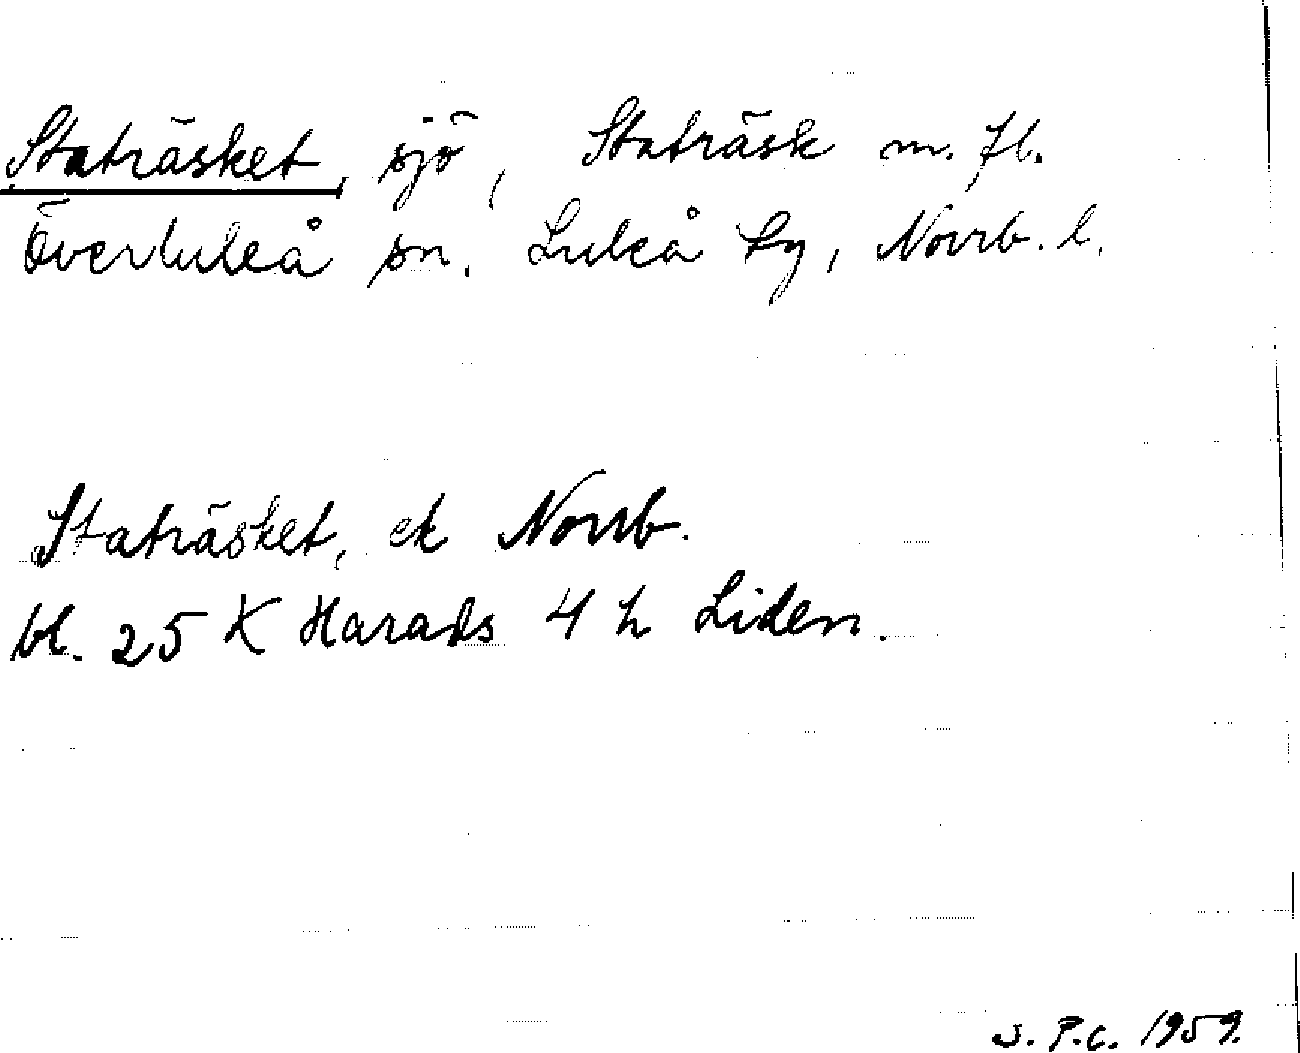 Staträsket, sjö, Staträsk m. fl.
Överluleå sn. Luleå tg, Norrb. l.
Staträsket, ek Norrb.
bl. 25 K Harads 4 h Liden.
S. P.C. 1959.